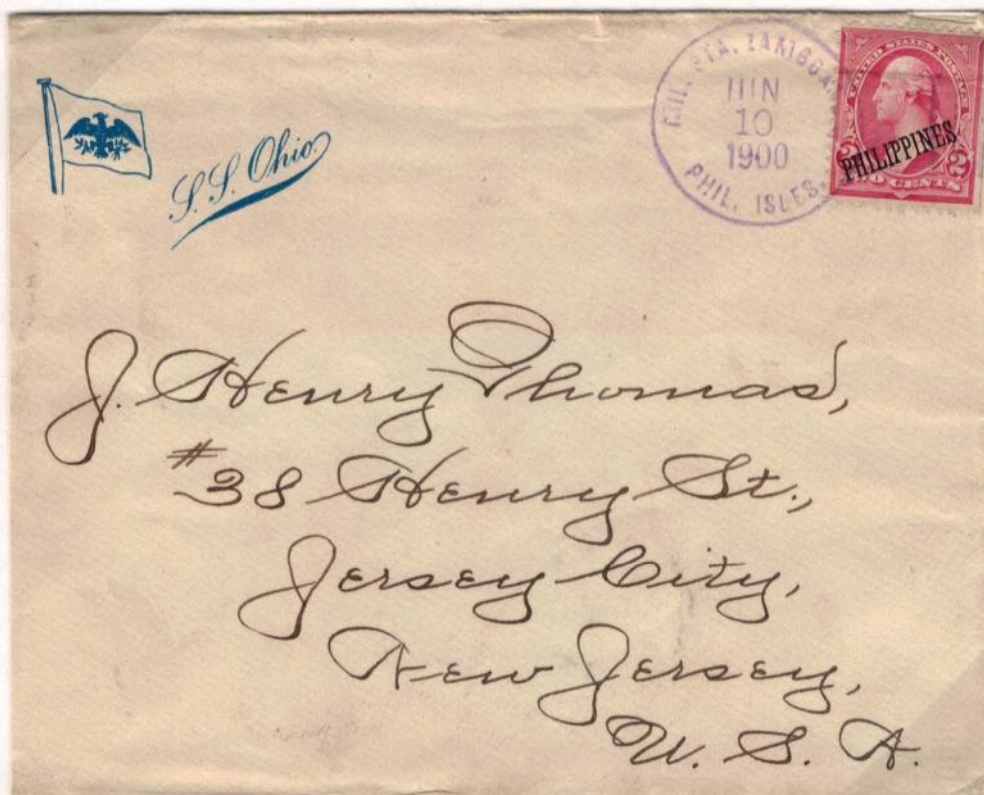 S.S. Ohio
MIL. STA. ZAMBOAN
JUN
10
1900
PHIL. ISLES.
UNITED STATES POSTAGE
PHILIPPINES
2 2
TWO CENTS
J. Henry Thomas,
#38 Henry St.,
Jersey City,
New Jersey,
U. S. A.